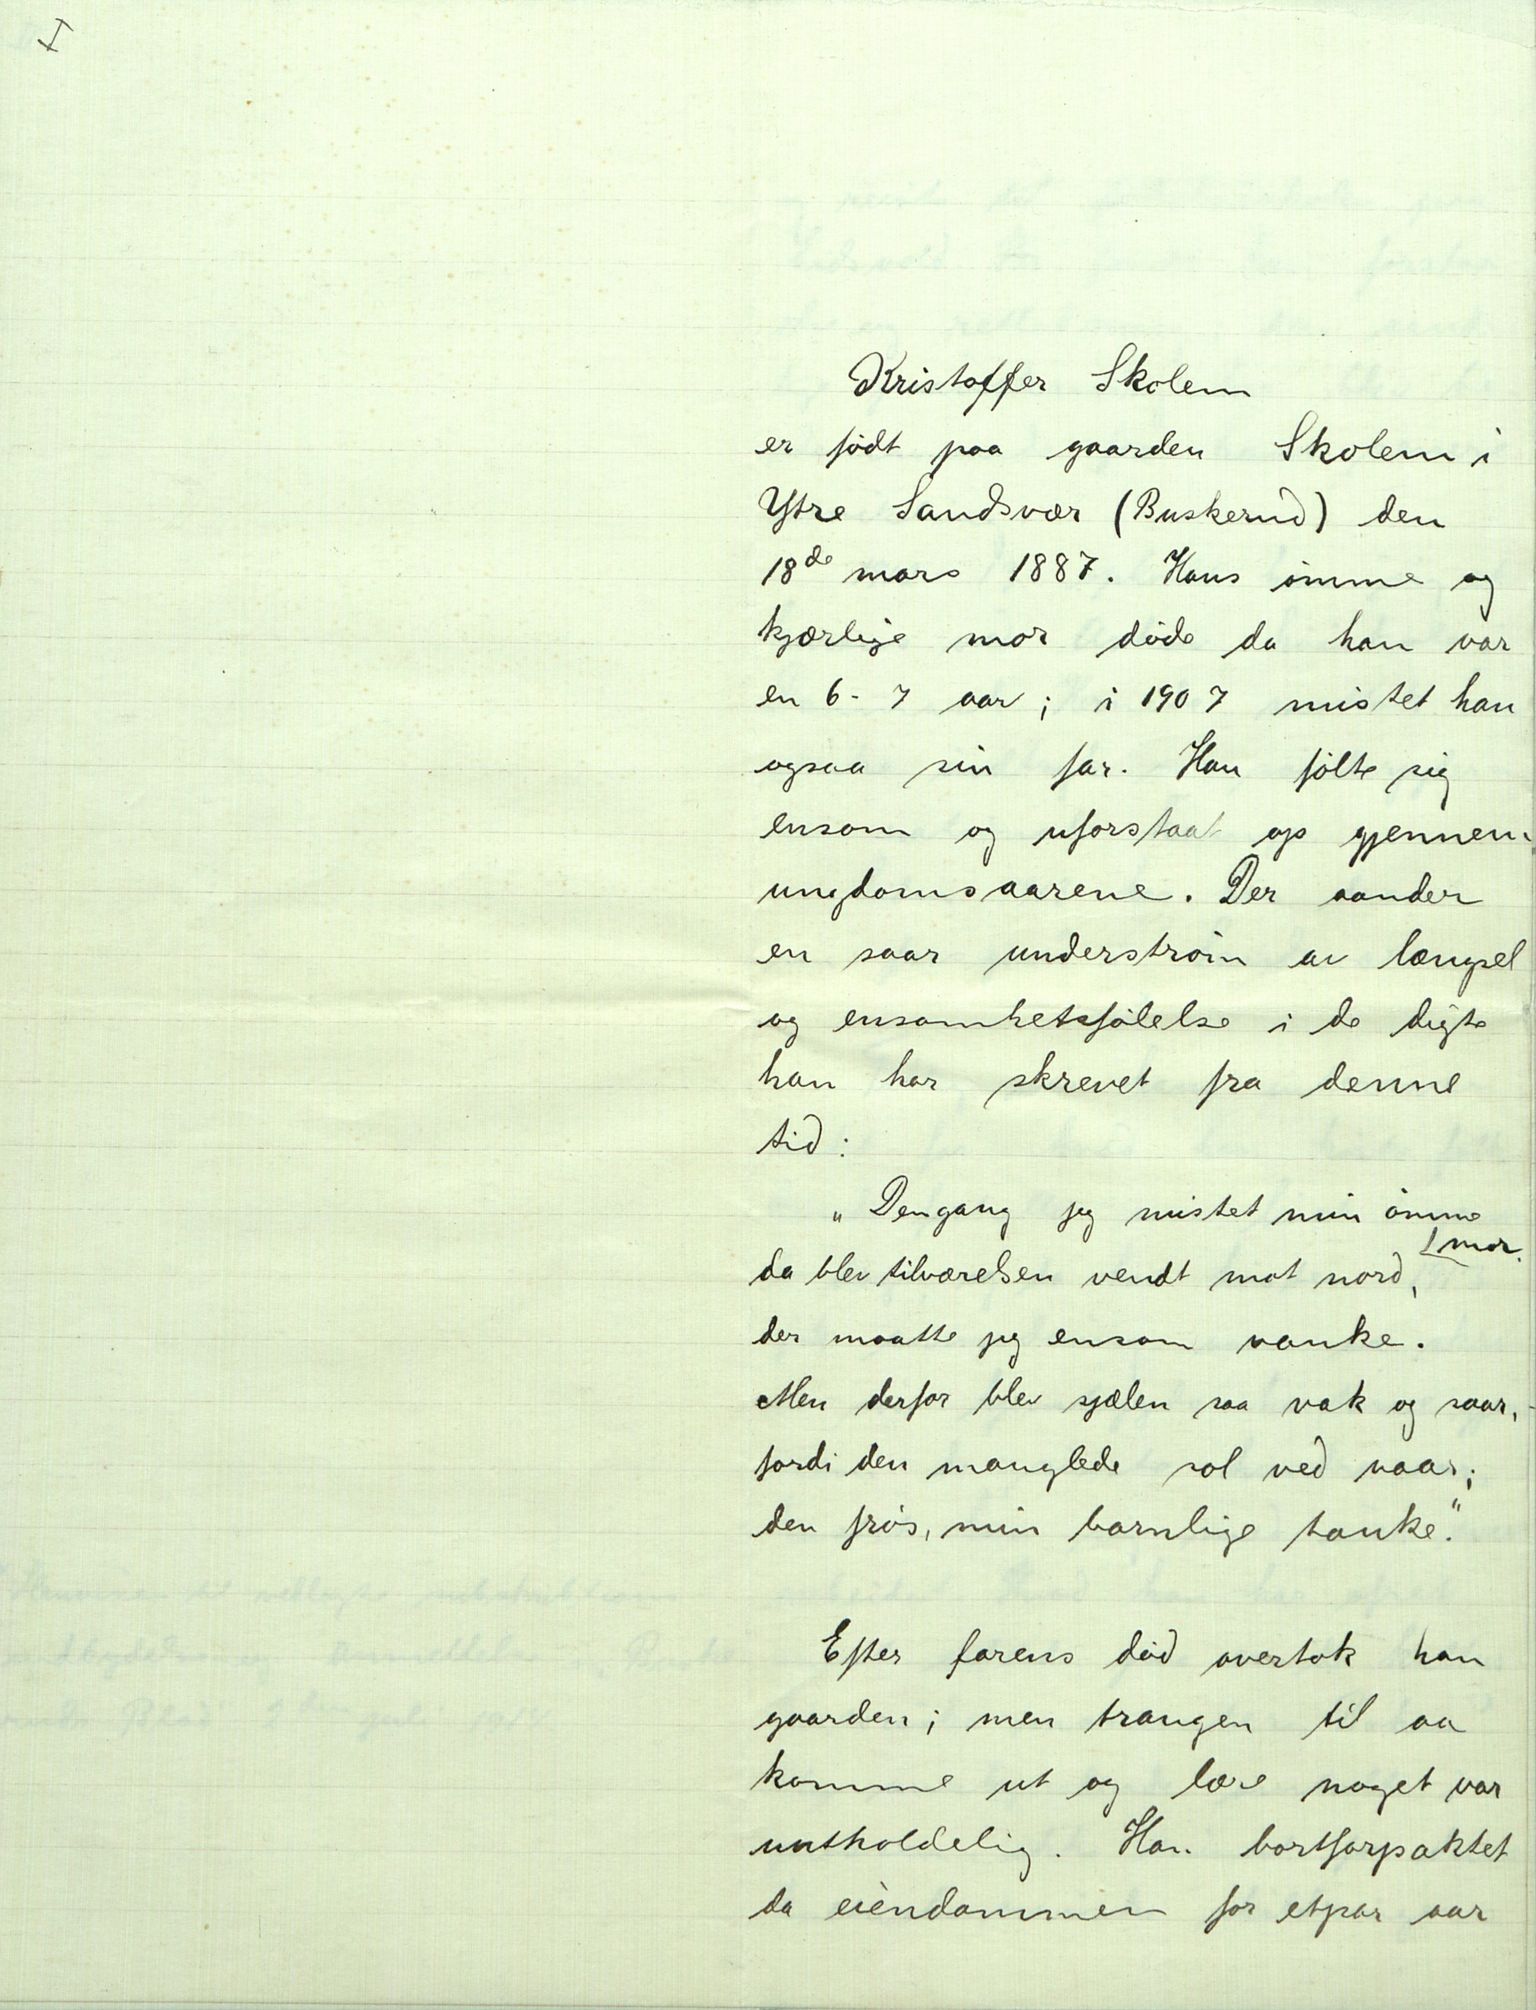 I
Kristoffer Skolem
er født paa gaarden Skolem i
Ytre Sandsvær (Buskerud) den
18de mars 1887. Hans ømme og
kjærlige mor døde da han var
en 6-7 aar; i 1907 mistet han
ogsaa sin far. Han følte sig
ensom og uforstaat op gjennem
ungdomsaarene. Der aander
en saar understrøm av længsel
og ensomhetsfølelse i de digte
han har skrevet fra denne
tid:
„Dengang jeg mistet min ømme
mor.
da blev tilværelsen vendt mot nord,
der maatte jeg ensom vanke.
Men derfor blev sjælen saa vak og saar,
fordi den manglede sol ved vaar;
den frøs, min barnlige tanke."
Efter farens død overtok han
gaarden; men trangen til aa
komme ut og lære noget var
uutholdelig. Han bortforpaktet
da eiendommen for etpar aar